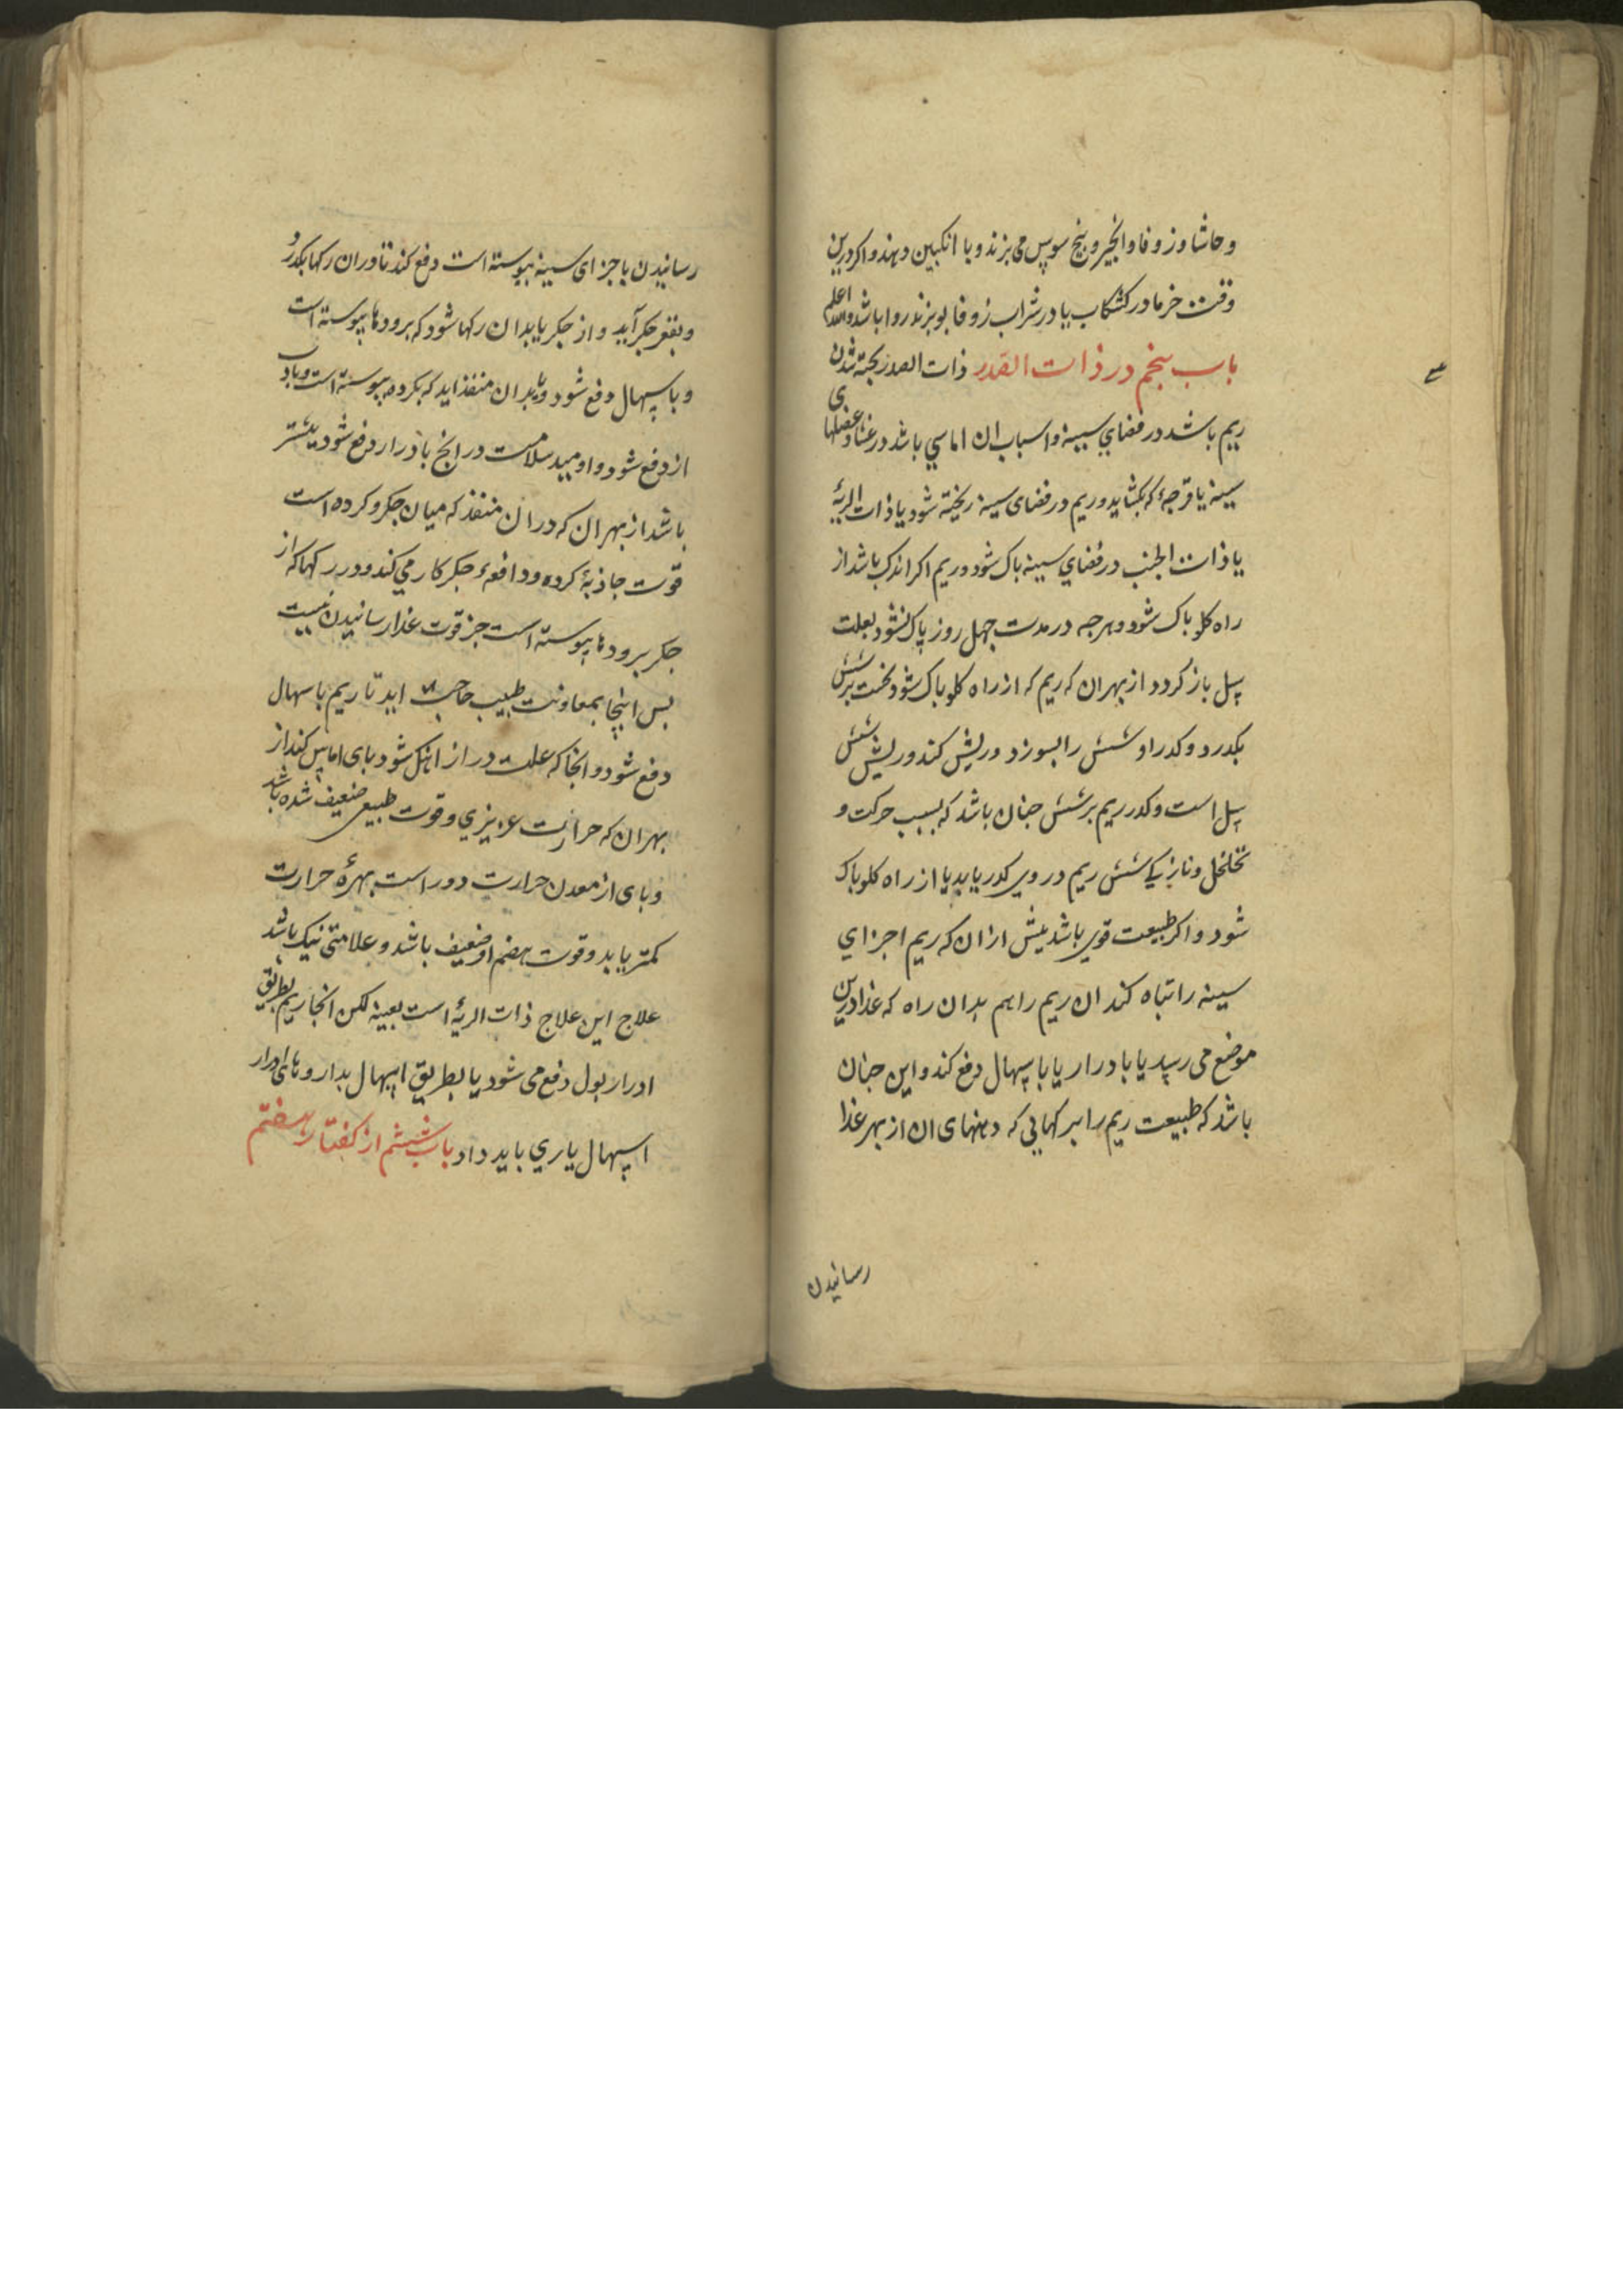 و حاشا و زوفا و انجیر و بیخ سوس می بزند و با انکبین دهند و اکر درین
وقت خرما در کشکاب یا در شراب زوفا بوبزند روا باشد والله اعلم
باب بنجم در ذات الصدر ذات الصدر بخته شدن
ریم باشد در فضای سینه و اسباب ان اماسی باشد در غشا و عضلهای
سینه یا قرحهٔ که بکشاید و ریم در فضای سینه ریخته شود یا ذات الریهٔ
یا ذات الجنب در فضای سینه باک شود و ریم اکر اندک باشد از
راه کلو باک شود و هرجه در مدت جهل روز پاک نشود بعلت
سل باز کردد از بهر ان که ریم که از راه کلو باک شود نخست بر شش
بکدرد و کدر او شش را بسوزد و ریش کند و ریش شش
سل است و کدر ریم بر شش جنان باشد که بسبب حرکت و
تخلخل و نازیکی شش ریم در وی کدر یابد یا از راه کلو باک
شود و اکر طبیعت قوی باشد بیش از ان که ریم اجزای
سینه را تباه کند ان ریم را هم بدان راه که غذا درین
موضع می رسد یا بادرار یا باسهال دفع کند و این جنان
باشد که طبیعت ریم را برکهایی که دهنهای ان از بهر غذا
رسانیدن
رسانیدن باجزای سینه بیوسته است دفع کند تا دران رکها بکدرد
و بقعر جکر آید و از جکر یا بدان رکها شود که برودها بیوسته است
و باسهال دفع شود و یا بدان منفذ اید که بکرده بیوسته است و با
از دفع شود و اومید سلامت در انج بادرار دفع شود بیشتر
باشد از بهر ان که در ان منفذ که میان جکر و کرده است
قوت جاذبهٔ کرده و دافعهٔ جکر کار می کند و در رکها که از
جکر برودها بیوسته است جز قوت غذا رسانیدن نیست
بس اینجا بمعاونت طبیب حاجت اید تا ریم باسهال
دفع شود و انجا که علت دراز اهنک شود بای اماس کند از
بهر ان که حرارت عزیزی و قوت طبیعی ضعیف شده باشد
و بای از معدن حرارت دور است بهرهٔ حرارت
کمتر یابد و قوت هضم او ضعیف باشد و علامتی نیک باشد
علاج این علاج ذات الریهٔ است بعینه لکن انجا ریم بطریق
ادرار بول دفع می شود یا بطریق اسهال بداروهای ادرار
اسهال یاری باید داد باب ششم از کفتار هفتم